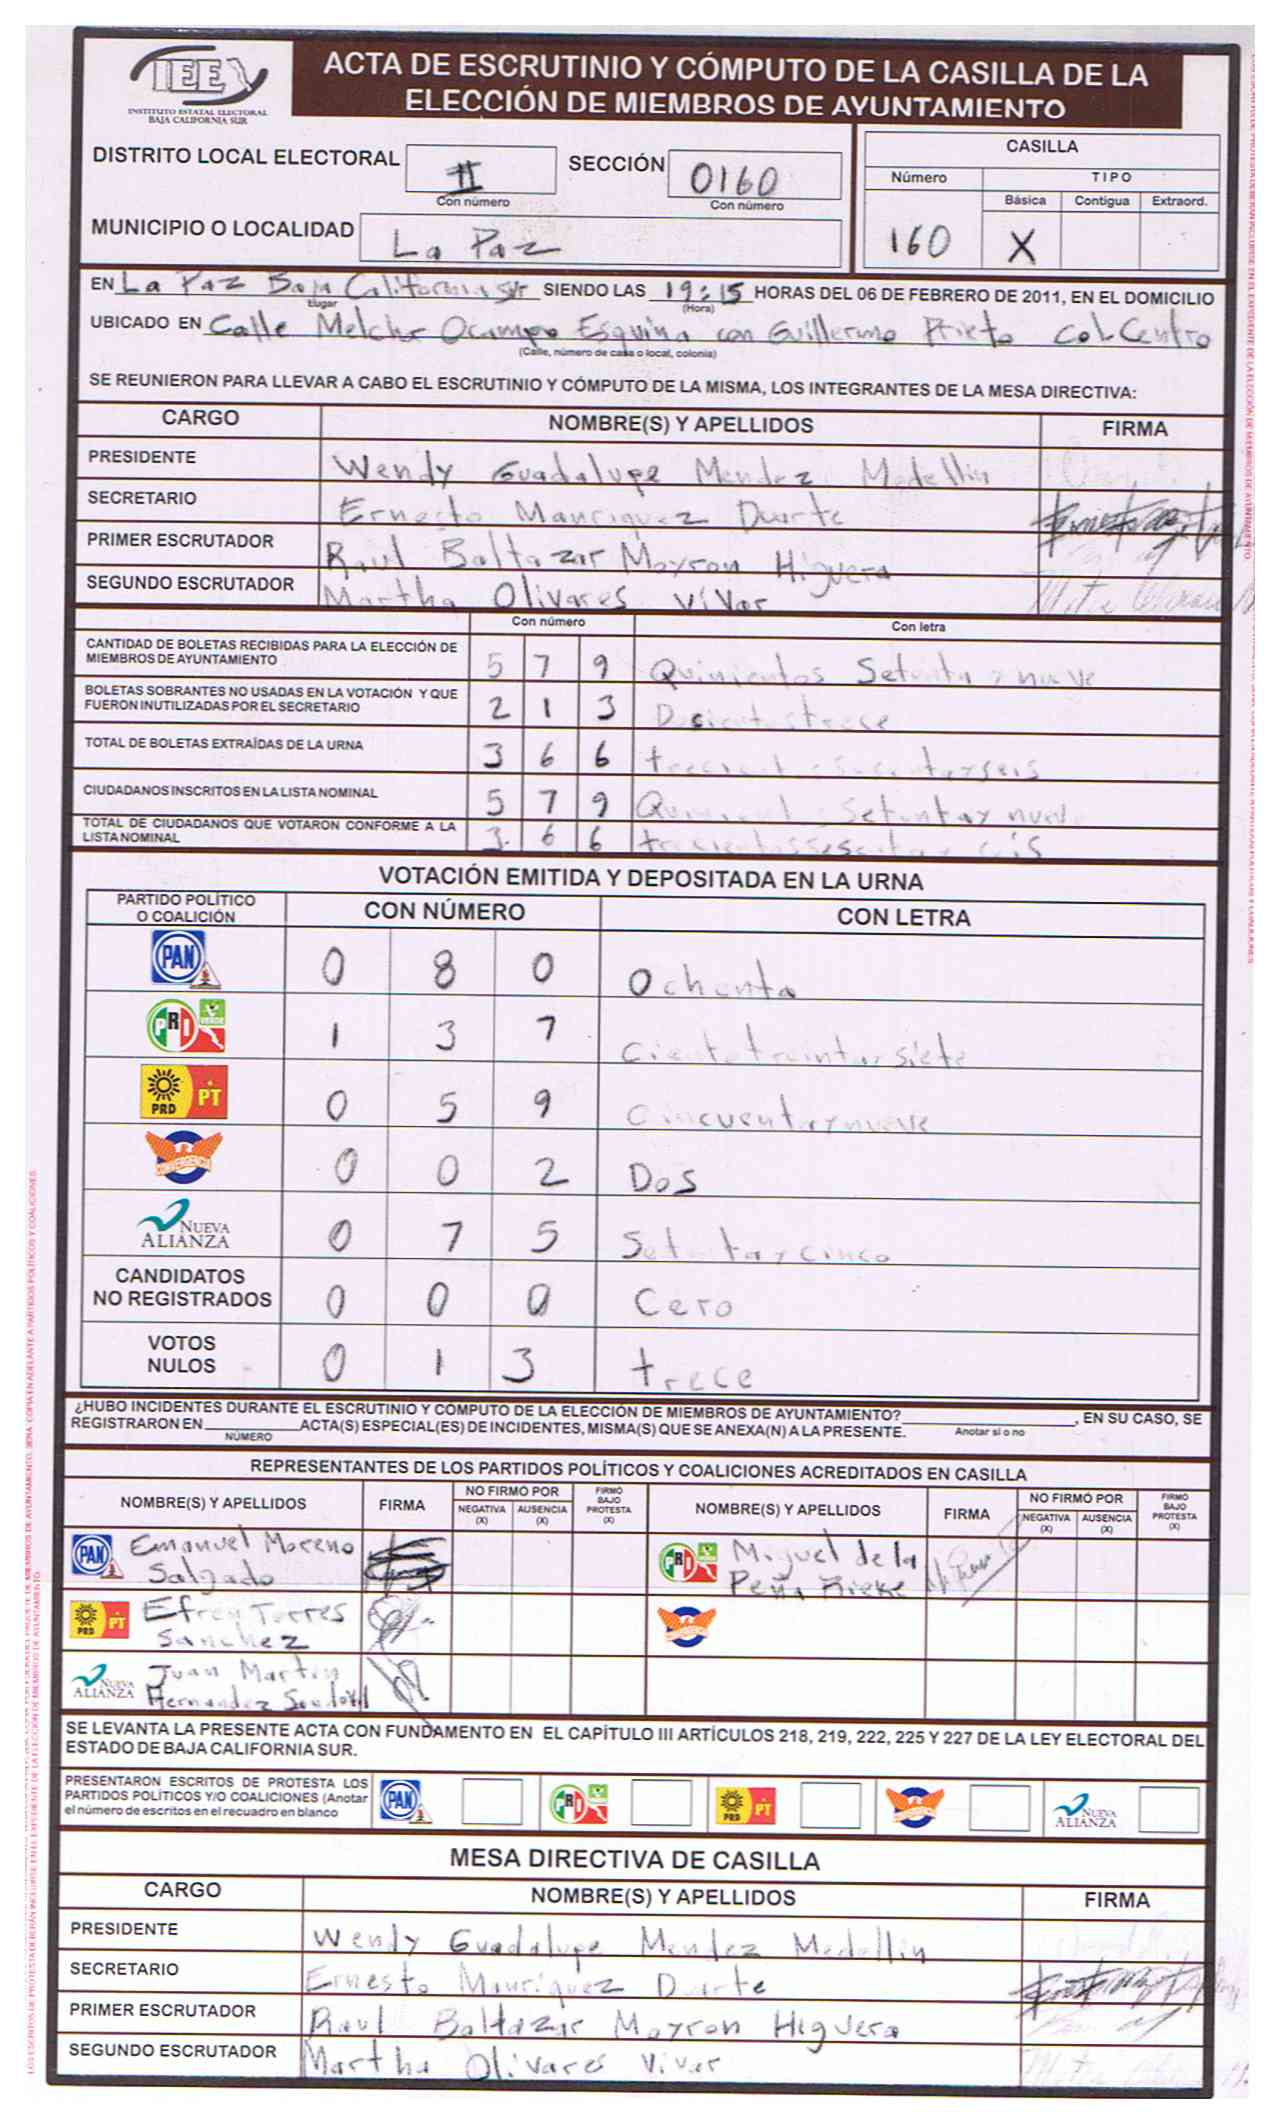 IEE
INSTITUTO ESTATAL ELECTORAL
BAJA CALIFORNIA SUR
ACTA DE ESCRUTINIO Y CÓMPUTO DE LA CASILLA DE LA
ELECCIÓN DE MIEMBROS DE AYUNTAMIENTO
DISTRITO LOCAL ELECTORAL II SECCIÓN 0160
Con número Con número
MUNICIPIO O LOCALIDAD La Paz
CASILLA
Número TIPO
Básica Contigua Extraord.
160 X
EN La Paz Baja California Sur SIENDO LAS 19:15 HORAS DEL 06 DE FEBRERO DE 2011, EN EL DOMICILIO
Lugar (Hora)
UBICADO EN Calle Melchor Ocampo Esquina con Guillermo Prieto Col. Centro
(Calle, número de casa o local, colonia)
SE REUNIERON PARA LLEVAR A CABO EL ESCRUTINIO Y CÓMPUTO DE LA MISMA, LOS INTEGRANTES DE LA MESA DIRECTIVA:
CARGO NOMBRE(S) Y APELLIDOS FIRMA
PRESIDENTE Wendy Guadalupe Mendez Medellin
SECRETARIO Ernesto Manriquez Duarte
PRIMER ESCRUTADOR Raul Baltazar Mayron Higuera
SEGUNDO ESCRUTADOR Martha Olivares Vivar
Con número Con letra
CANTIDAD DE BOLETAS RECIBIDAS PARA LA ELECCIÓN DE
MIEMBROS DE AYUNTAMIENTO 5 7 9 Quinientos Setenta y nueve
BOLETAS SOBRANTES NO USADAS EN LA VOTACIÓN Y QUE
FUERON INUTILIZADAS POR EL SECRETARIO 2 1 3 Docientos trece
TOTAL DE BOLETAS EXTRAÍDAS DE LA URNA 3 6 6 trecientos sesenta y seis
CIUDADANOS INSCRITOS EN LA LISTA NOMINAL 5 7 9 Quinientos Setenta y nueve
TOTAL DE CIUDADANOS QUE VOTARON CONFORME A LA
LISTA NOMINAL 3 6 6 trecientos sesenta y seis
VOTACIÓN EMITIDA Y DEPOSITADA EN LA URNA
PARTIDO POLÍTICO
O COALICIÓN CON NÚMERO CON LETRA
PAN 0 8 0 Ochenta
PRI VERDE 1 3 7 Ciento treinta y siete
PRD PT 0 5 9 Cincuenta y nueve
CONVERGENCIA 0 0 2 Dos
NUEVA
ALIANZA 0 7 5 Setenta y cinco
CANDIDATOS
NO REGISTRADOS 0 0 0 Cero
VOTOS
NULOS 0 1 3 trece
¿HUBO INCIDENTES DURANTE EL ESCRUTINIO Y CÓMPUTO DE LA ELECCIÓN DE MIEMBROS DE AYUNTAMIENTO? , EN SU CASO, SE
REGISTRARON EN ACTA(S) ESPECIAL(ES) DE INCIDENTES, MISMA(S) QUE SE ANEXA(N) A LA PRESENTE. Anotar si o no
NÚMERO
REPRESENTANTES DE LOS PARTIDOS POLÍTICOS Y COALICIONES ACREDITADOS EN CASILLA
NOMBRE(S) Y APELLIDOS FIRMA NO FIRMÓ POR NEGATIVA (X) AUSENCIA (X) FIRMÓ BAJO PROTESTA (X) NOMBRE(S) Y APELLIDOS FIRMA NO FIRMÓ POR NEGATIVA (X) AUSENCIA (X) FIRMÓ BAJO PROTESTA (X)
PAN Emanuel Moreno
Salgado
PRI Miguel de la
Peña
PRD PT Efren Torres
Sanchez
CONVERGENCIA
NUEVA
ALIANZA Juan Martin
Hernandez Sandoval
SE LEVANTA LA PRESENTE ACTA CON FUNDAMENTO EN EL CAPÍTULO III ARTÍCULOS 218, 219, 222, 225 Y 227 DE LA LEY ELECTORAL DEL
ESTADO DE BAJA CALIFORNIA SUR.
PRESENTARON ESCRITOS DE PROTESTA LOS
PARTIDOS POLÍTICOS Y/O COALICIONES (Anotar
el número de escritos en el recuadro en blanco
PAN PRI PRD PT CONVERGENCIA NUEVA ALIANZA
MESA DIRECTIVA DE CASILLA
CARGO NOMBRE(S) Y APELLIDOS FIRMA
PRESIDENTE Wendy Guadalupe Mendez Medellin
SECRETARIO Ernesto Manriquez Duarte
PRIMER ESCRUTADOR Raul Baltazar Mayron Higuera
SEGUNDO ESCRUTADOR Martha Olivares Vivar